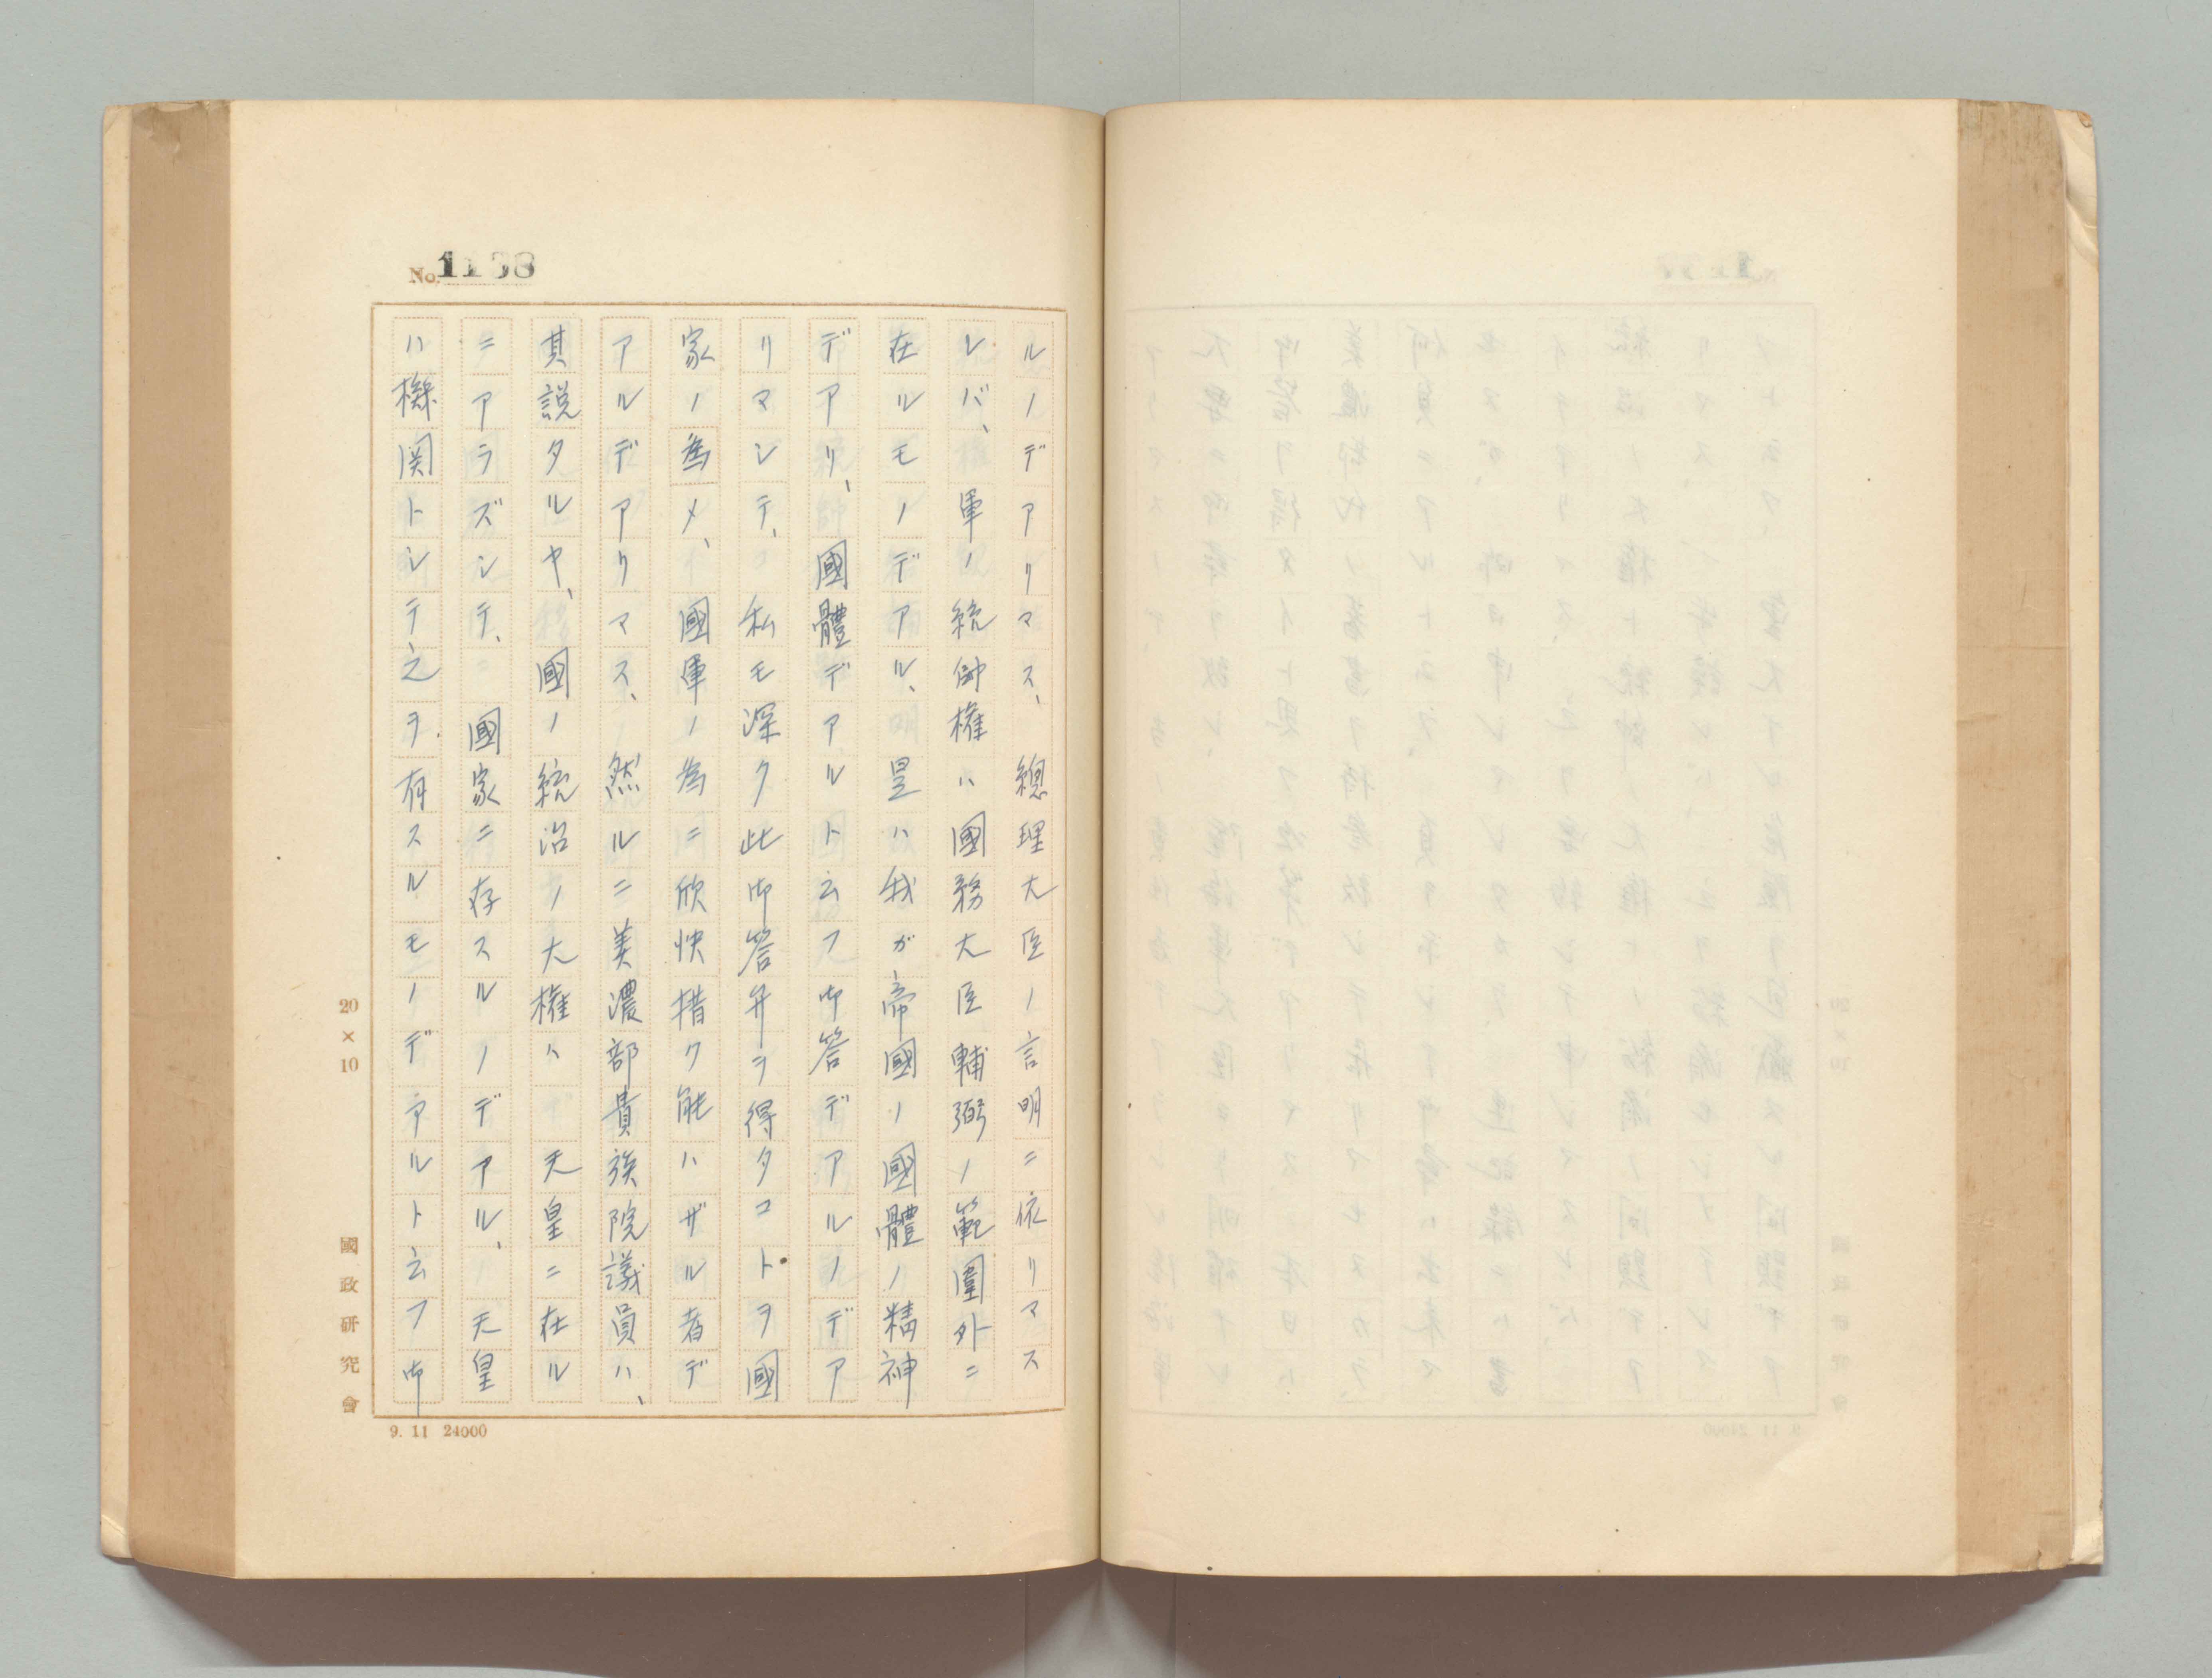 No. 1138
ルノデアリマス、總理大臣ノ言明ニ依リマス
レバ、軍ノ統帥權ハ國務大臣輔弼ノ範圍外ニ
在ルモノデアル、是ハ我ガ帝國ノ國體ノ精神
デアリ、國體デアルト云フ御答デアルノデア
リマシテ、私モ深ク此御答弁ヲ得タコトヲ國
家ノ為メ、國軍ノ為ニ欣快措ク能ハザル者デ
アルデアリマス、然ルニ美濃部貴族院議員ハ、
其説タルヤ、國ノ統治ノ大権ハ 天皇ニ在ル
ニアラズシテ、國家ニ存スルノデアル、天皇
ハ機関トシテ之ヲ有スルモノデアルト云フ御
20×10
國政研究會
9. 11 24000